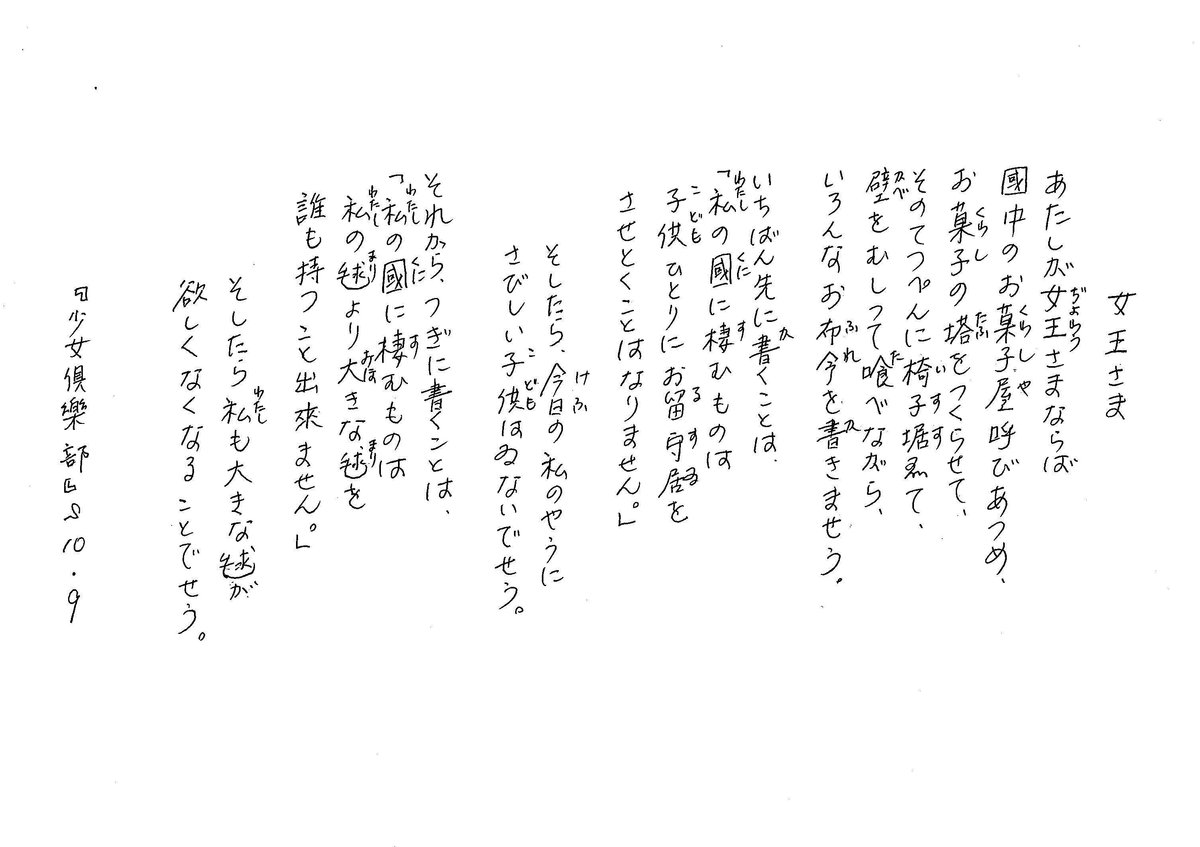 女王さま
あたしが女王さまならば
國中のお菓子屋呼びあつめ、
お菓子の塔をつくらせて、
そのてつぺんに椅子据ゑて、
壁をむしつて喰べながら、
いろんなお布令を書きませう。
いちばん先に書くことは、
「私の國に棲むものは
子供ひとりにお留守居を
させとくことはなりません。」
そしたら、今日の私のやうに
さびしい子供はゐないでせう。
それから、つぎに書くことは、
「私の國に棲むものは
私の毬より大きな毬を
誰も持つこと出來ません。」
そしたら私も大きな毬が
欲しくなくなることでせう。
『少女倶樂部』S10.9